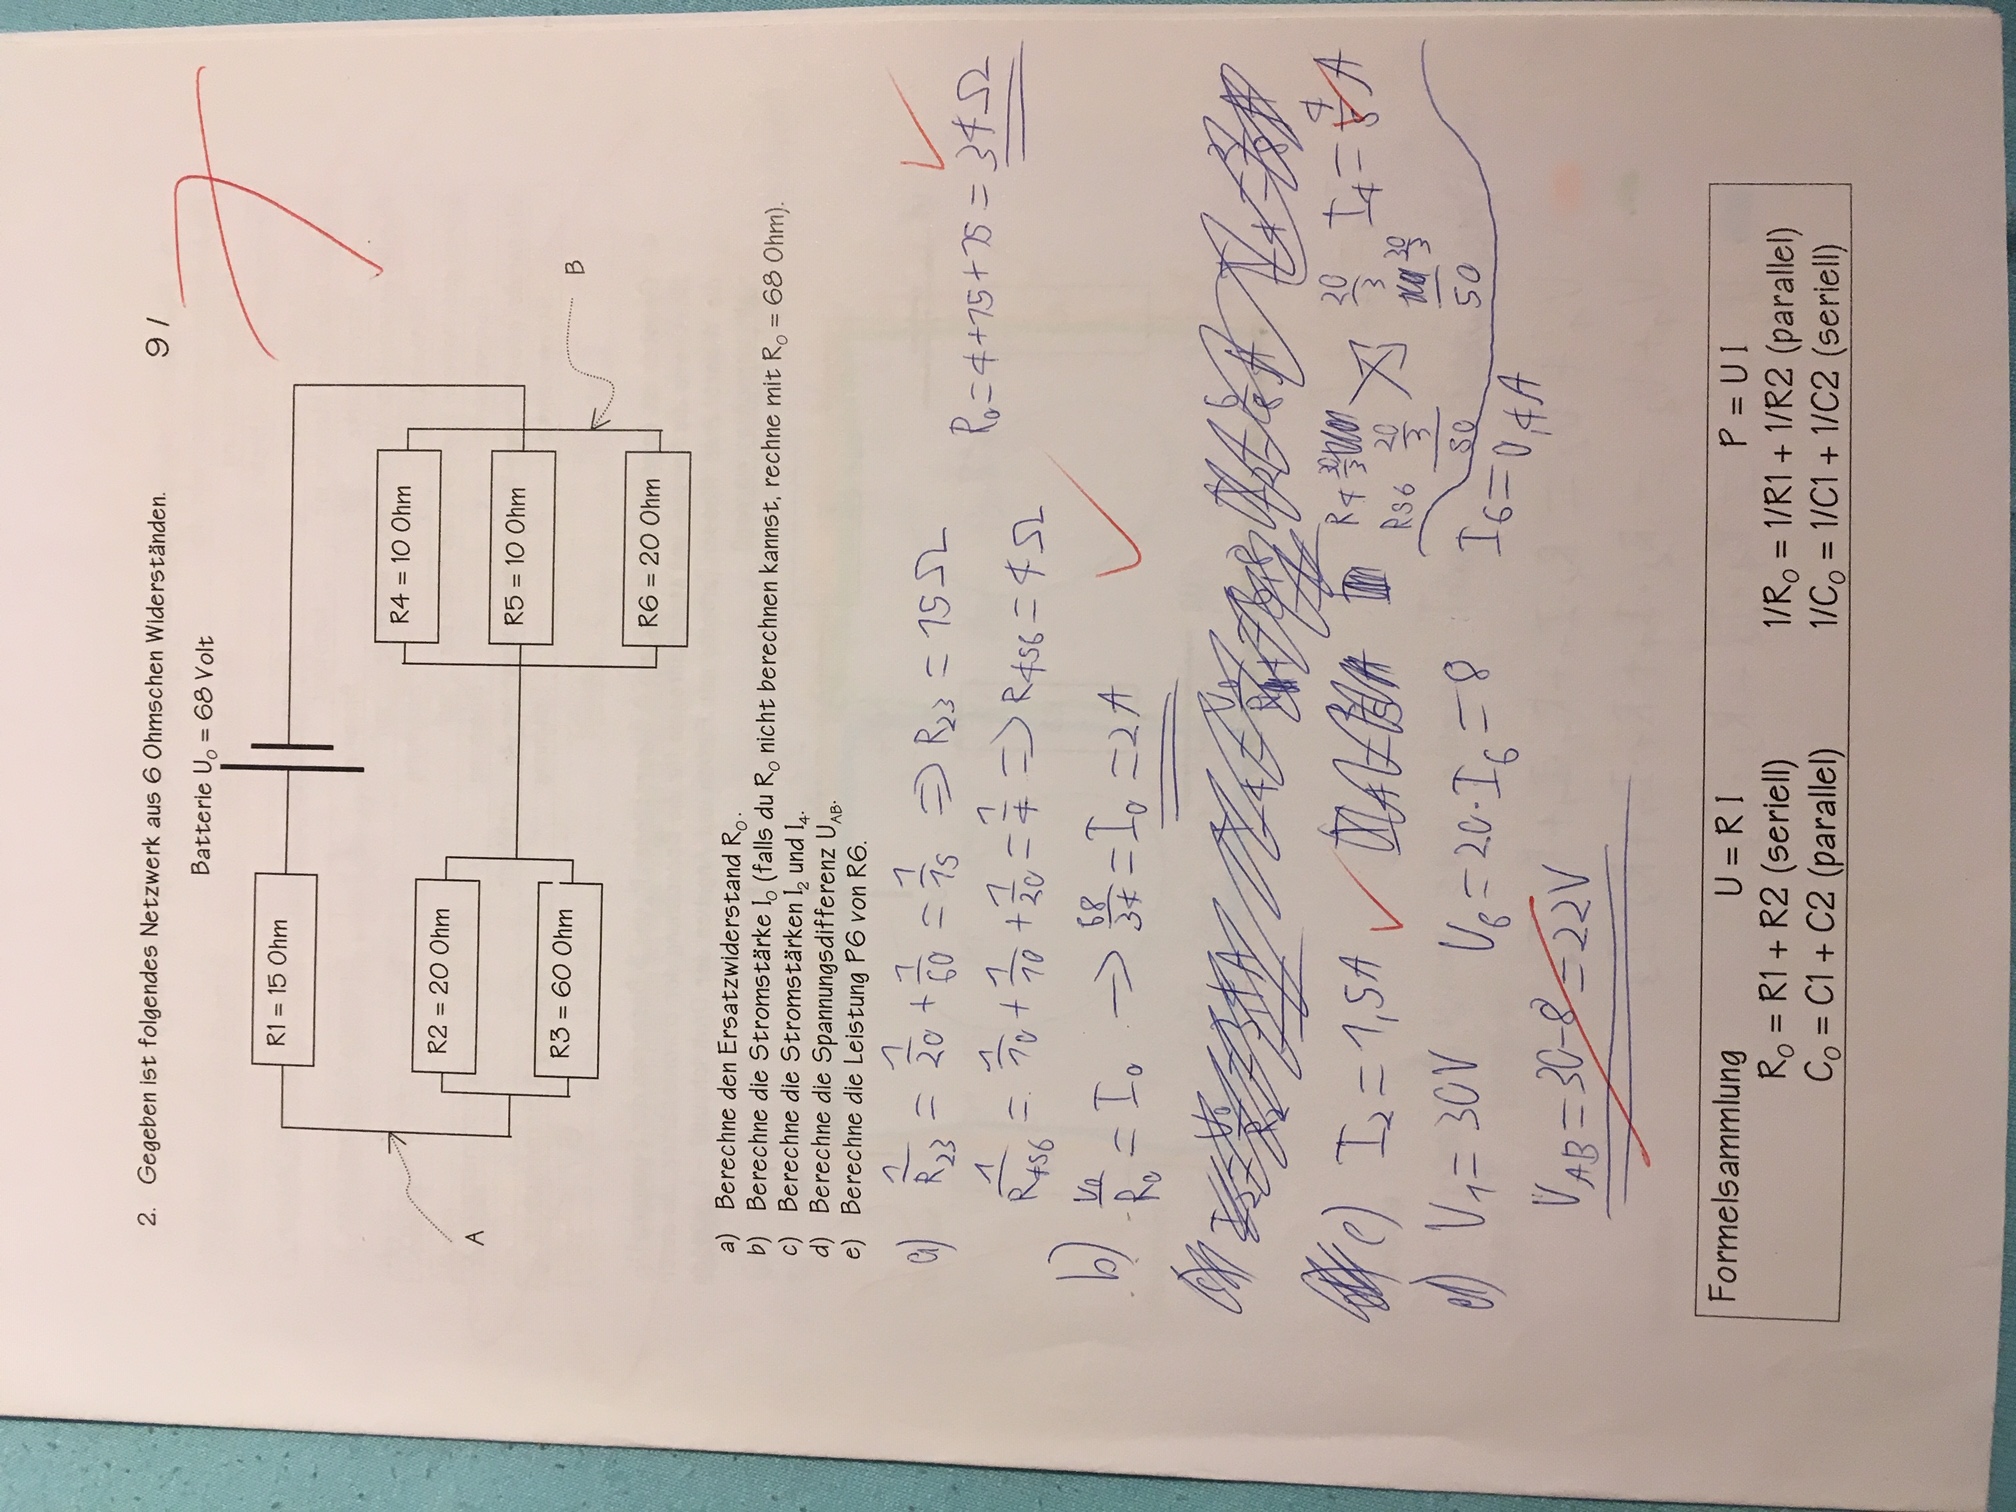 2. Gegeben ist folgendes Netzwerk aus 6 Ohmschen Widerständen. 9 / 7
Batterie U₀ = 68 Volt
R1 = 15 Ohm
R4 = 10 Ohm
R2 = 20 Ohm
A
R5 = 10 Ohm
R3 = 60 Ohm
B
R6 = 20 Ohm
a) Berechne den Ersatzwiderstand R₀.
b) Berechne die Stromstärke I₀ (falls du R₀ nicht berechnen kannst, rechne mit R₀ = 68 Ohm).
c) Berechne die Stromstärken I₂ und I₄.
d) Berechne die Spannungsdifferenz U_AB.
e) Berechne die Leistung P6 von R6.
a) 1/R₂₃ = 1/20 + 1/60 = 1/15 ⇒ R₂₃ = 15 Ω
R₀ = 4 + 15 + 15 = 34 Ω
1/R₄₅₆ = 1/10 + 1/10 + 1/20 = 1/4 ⇒ R₄₅₆ = 4 Ω
b) U₀/R₀ = I₀ → 68/34 = I₀ = 2 A
c) I₂ = 1,5 A
R₄ 30/3 20/3 I₄ = 4/5 A
R₅₆ 20/3 30/3
50 50
d) U₁ = 30V U₆ = 20 · I₆ = 8 I₆ = 0,4 A
U_AB = 30 - 8 = 22V
Formelsammlung U = R I P = U I
R₀ = R1 + R2 (seriell) 1/R₀ = 1/R1 + 1/R2 (parallel)
C₀ = C1 + C2 (parallel) 1/C₀ = 1/C1 + 1/C2 (seriell)